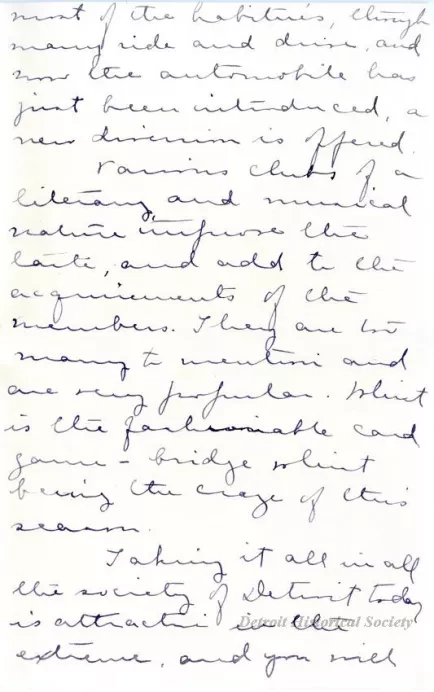 most of the habitués, though
many ride and drive, and
now the automobile has
just been introduced, a
new diversion is offered.
Various clubs of a
literary and musical
nature improve the
taste, and add to the
acquirements of the
members. They are too
many to mention and
are very popular. Whist
is the fashionable card
game - bridge whist
being the craze of this
season.
Taking it all in all
the society of Detroit today
is attractive in the
Detroit Historical Society
extreme, and you will